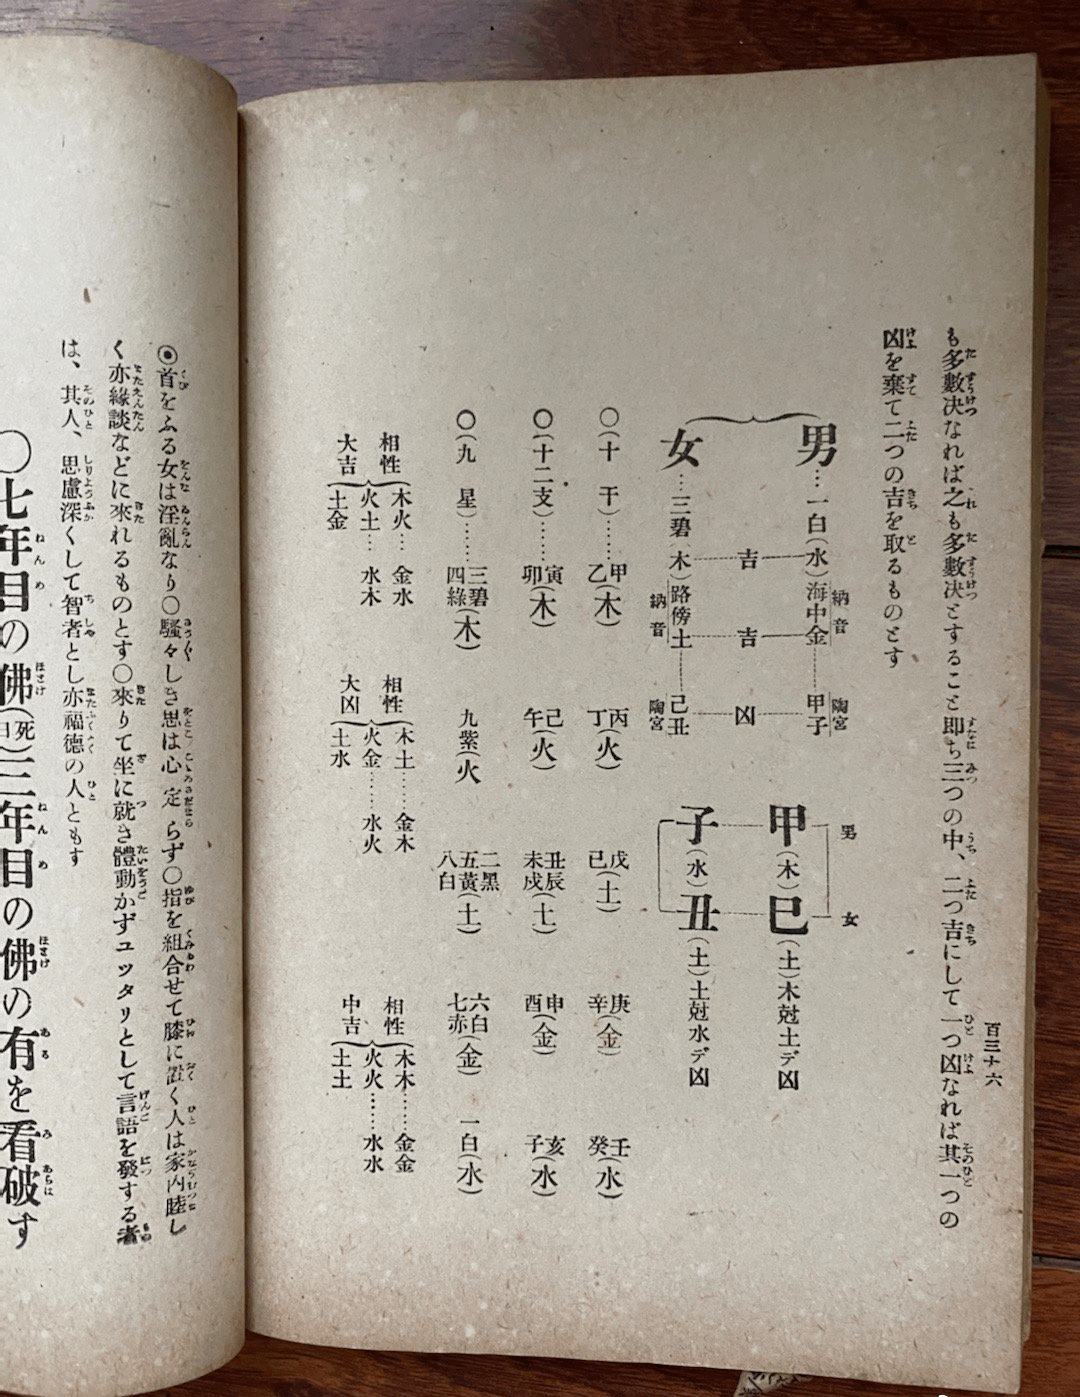 百三十六
も多數决なれば之も多數决とすること卽ち三つの中、二つ吉にして一つ凶なれば其一つの
凶を棄て二つの吉を取るものとす
男…一白(水)海中金 納音 甲子 陶宮
吉 吉 凶
女…三碧(木)路傍土 納音 己丑 陶宮
男 女
甲(木)巳(土)木尅土デ凶
子(水)丑(土)土尅水デ凶
〇(十干)……甲乙(木) 丙丁(火) 戊己(土) 庚辛(金) 壬癸(水)
〇(十二支)……寅卯(木) 巳午(火) 丑辰未戌(土) 申酉(金) 亥子(水)
〇(九星)……三碧四綠(木) 九紫(火) 二黑五黃八白(土) 六白七赤(金) 一白(水)
相性大吉 木火…金水 火土…水木 土金
相性大凶 木土……金木 火金……水火 土水
相性中吉 木木……金金 火火……水水 土土
◉首をふる女は淫亂なり〇騷々しき思は心定らず〇指を組合せて膝に置く人は家內睦し
く亦緣談などに來れるものとす〇來りて坐に就き體動かずユッタリとして言語を發する者
は、其人、思慮深くして智者とし亦福德の人ともす
〇七年目の佛(死日)三年目の佛の有を看破す